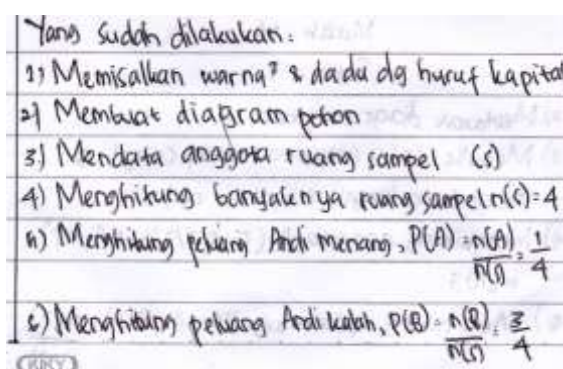 Yang sudah dilakukan:
1) Memisalkan warna² & dadu dg huruf kapital
2) Membuat diagram pohon
3.) Mendata anggota ruang sampel (S)
4) Menghitung banyaknya ruang sampel n(S)=4
5) Menghitung peluang Andi menang, P(A) = n(A)/n(S) = 1/4
6) Menghitung peluang Andi kalah, P(B) = n(B)/n(S) = 3/4